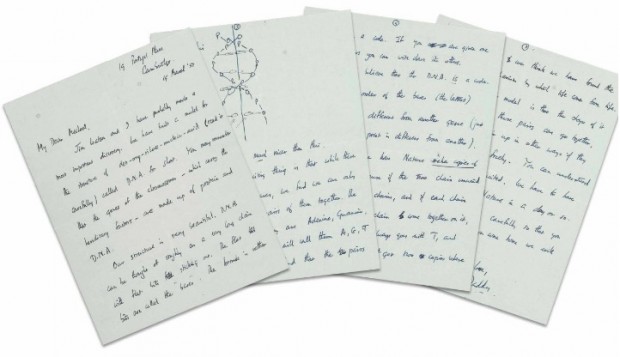 19 Portugal Place
Cambridge
19 March '53
My Dear Michael,
Jim Watson and I have probably made a
most important discovery. We have built a model for
the structure of des-oxy-ribose-nucleic-acid (read it
carefully) called D.N.A. for short. You may remember
that the genes of the chromosomes — which carry the
hereditary factors — are made up of protein and
D.N.A.
Our structure is very beautiful. D.N.A.
can be thought of roughly as a very long chain
with flat bits sticking out. The flat bits
are called the bases. The formula is rather
P
P
nicer than this.
thing is that while there
we find we can only
pairs of them together. The
are Adenine, Guanine,
I will call them A, G, T
that the pairs
a code. If you are given one
you can write down the other.
believe that the D.N.A. is a code.
order of the bases (the letters)
different from another gene (just
print is different from another).
how Nature makes copies of
if the two chains unwind
chains, and if each chain
chain come together on it,
always goes with T, and
get two copies where
we think we have found the
by which life comes from life.
model is that the shape of it
these pairs can go together,
up in other ways if they
freely. You can understand
We have to have
in a day or so.
carefully so that you
come home we will
love,
Daddy